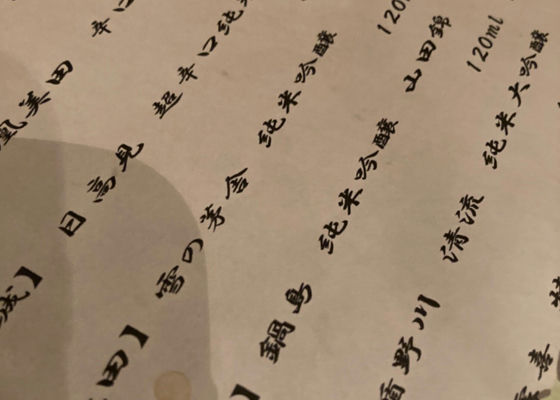 凰美田 辛口
城】 日高見 超辛口純
田】 雪の茅舎 純米吟醸
120
】 鍋島 純米吟醸 山田錦
120ml
野川 清流 純米大吟醸
喜